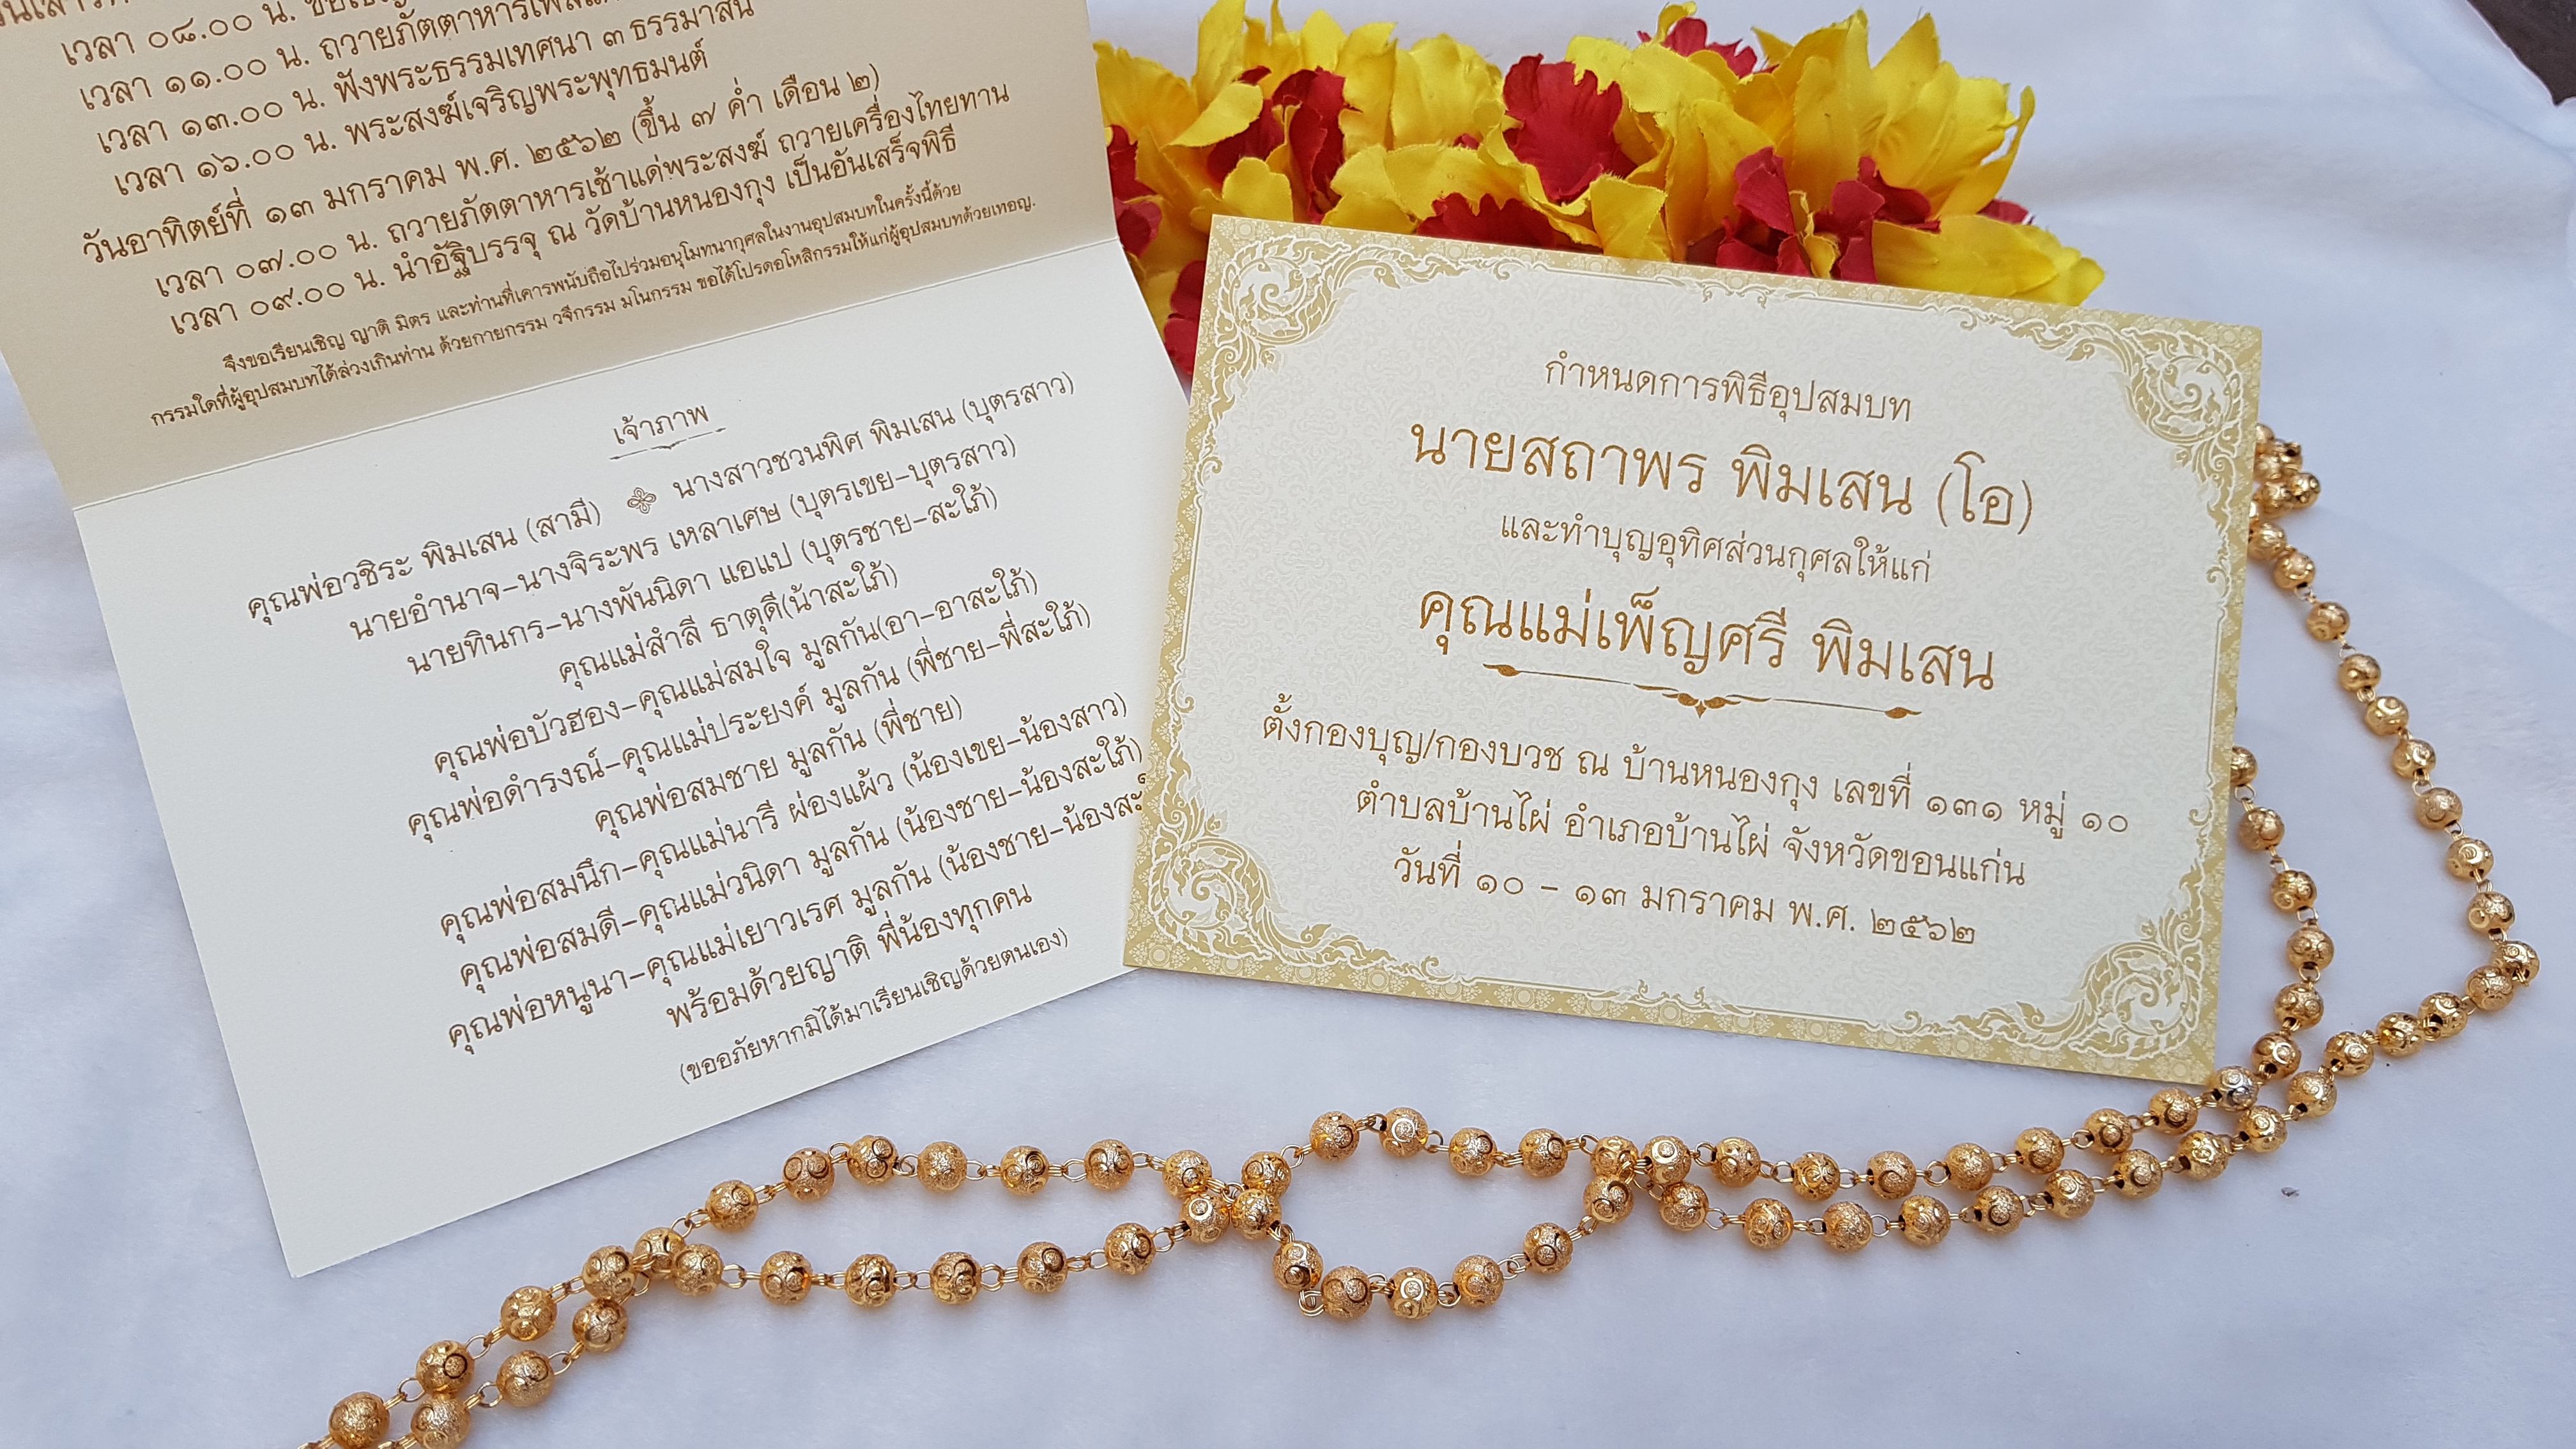 เวลา ๐๘.๐๐ น.
เวลา ๑๑.๐๐ น. ถวายภัตตาหารเพล
เวลา ๑๓.๐๐ น. ฟังพระธรรมเทศนา ๓ ธรรมาสน์
เวลา ๑๖.๐๐ น. พระสงฆ์เจริญพระพุทธมนต์
วันอาทิตย์ที่ ๑๓ มกราคม พ.ศ. ๒๕๖๒ (ขึ้น ๗ ค่ำ เดือน ๒)
เวลา ๐๗.๐๐ น. ถวายภัตตาหารเช้าแด่พระสงฆ์ ถวายเครื่องไทยทาน
เวลา ๐๙.๐๐ น. นำอัฐิบรรจุ ณ วัดบ้านหนองกุง เป็นอันเสร็จพิธี
จึงขอเรียนเชิญ ญาติ มิตร และท่านที่เคารพนับถือไปร่วมอนุโมทนากุศลในงานอุปสมบทในครั้งนี้ด้วย
กรรมใดที่ผู้อุปสมบทได้ล่วงเกินท่าน ด้วยกายกรรม วจีกรรม มโนกรรม ขอได้โปรดอโหสิกรรมให้แก่ผู้อุปสมบทด้วยเทอญ.
เจ้าภาพ
คุณพ่อวชิระ พิมเสน (สามี) นางสาวชวนพิศ พิมเสน (บุตรสาว)
นายอำนาจ-นางจิระพร เหลาเศษ (บุตรเขย-บุตรสาว)
นายทินกร-นางพันนิดา แอแป (บุตรชาย-สะใภ้)
คุณแม่สำลี ธาตุดี(น้าสะใภ้)
คุณพ่อบัวฮอง-คุณแม่สมใจ มูลกัน(อา-อาสะใภ้)
คุณพ่อดำรงณ์-คุณแม่ประยงค์ มูลกัน (พี่ชาย-พี่สะใภ้)
คุณพ่อสมชาย มูลกัน (พี่ชาย)
คุณพ่อสมนึก-คุณแม่นารี ผ่องแผ้ว (น้องเขย-น้องสาว)
คุณพ่อสมดี-คุณแม่วนิดา มูลกัน (น้องชาย-น้องสะใภ้)
คุณพ่อหนูนา-คุณแม่เยาวเรศ มูลกัน (น้องชาย-น้องสะ
พร้อมด้วยญาติ พี่น้องทุกคน
(ขออภัยหากมิได้มาเรียนเชิญด้วยตนเอง)
กำหนดการพิธีอุปสมบท
นายสถาพร พิมเสน (โอ)
และทำบุญอุทิศส่วนกุศลให้แก่
คุณแม่เพ็ญศรี พิมเสน
ตั้งกองบุญ/กองบวช ณ บ้านหนองกุง เลขที่ ๑๓๑ หมู่ ๑๐
ตำบลบ้านไผ่ อำเภอบ้านไผ่ จังหวัดขอนแก่น
วันที่ ๑๐ - ๑๓ มกราคม พ.ศ. ๒๕๖๒